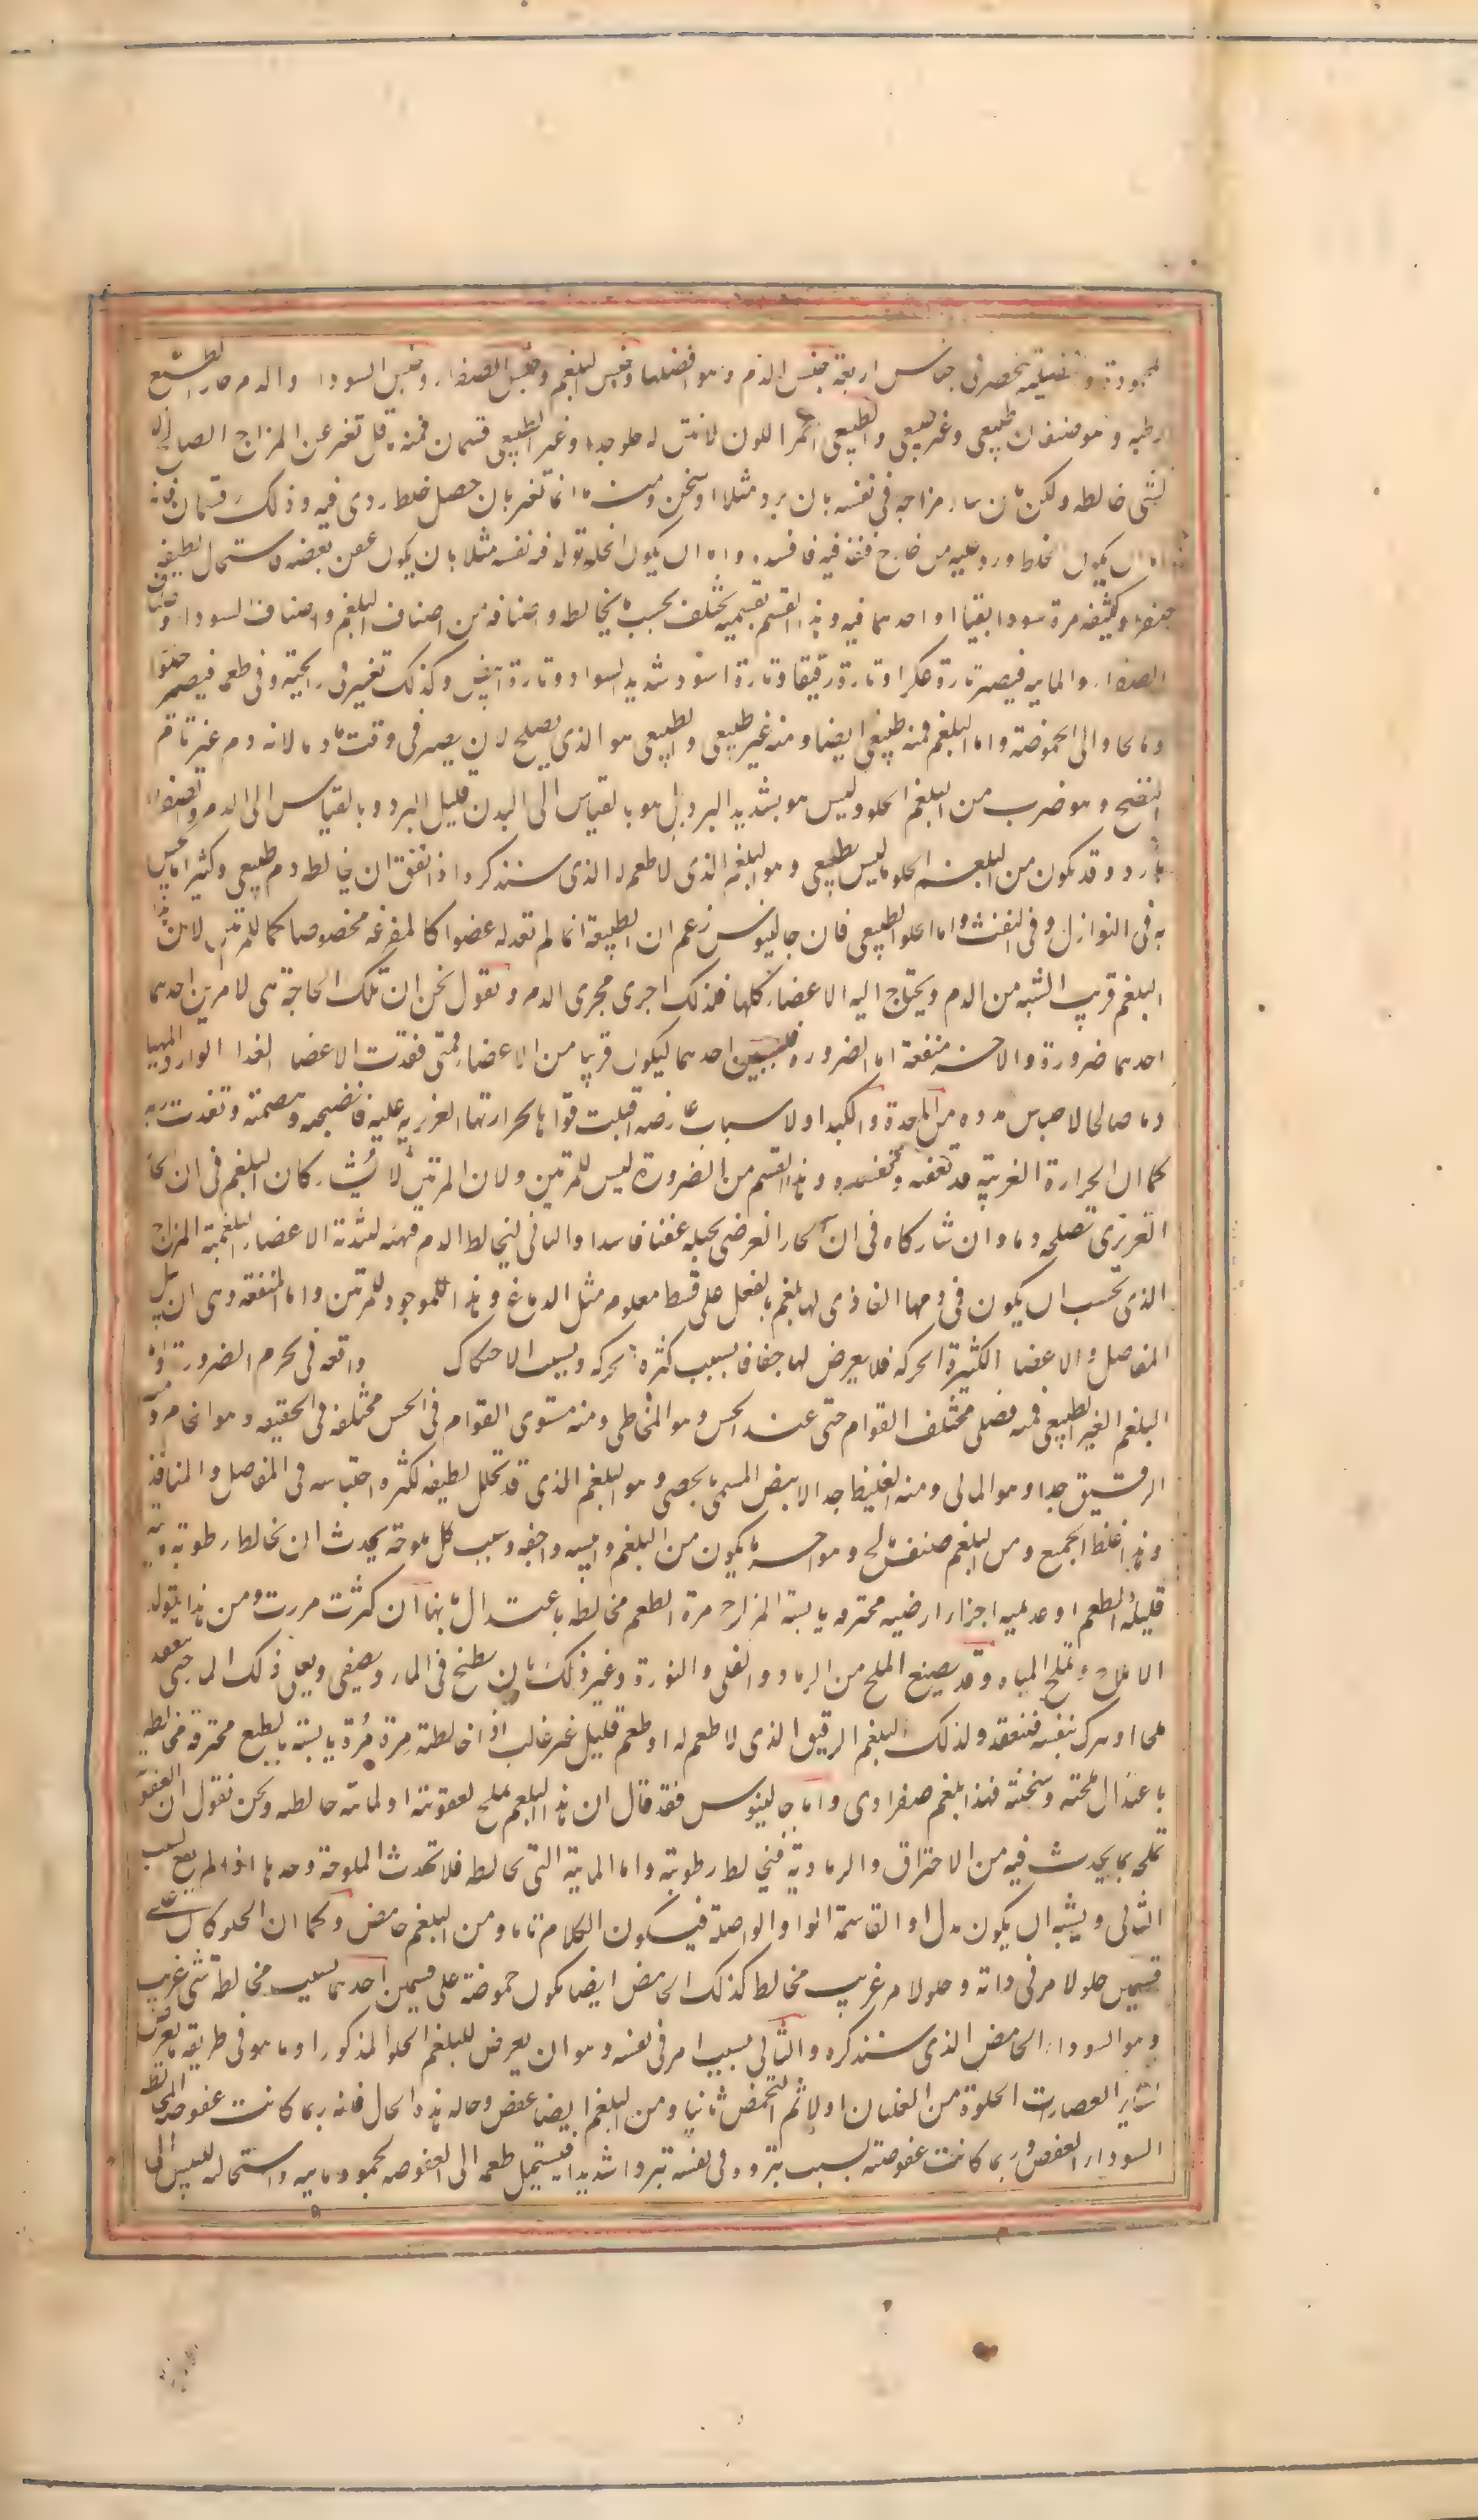 محمودة وفضلية تنحصر فى اجناس اربعة جنس الدم وهو افضلها وجنس البلغم وجنس الصفراء وجنس السوداء والدم حار الطبع
رطبه وهو صنفان طبيعى وغير طبيعى والطبيعى احمر اللون لا نتن له حلو جدا وغير الطبيعى قسمان فمنه قد تغير عن المزاج الصالح لا
لشئ خالطه ولكن بان ساء مزاجه فى نفسه بان برد مثلا او سخن ومنه ما انما تغير بان حصل خلط ردى فيه وذلك قسمان فانه
اما ان يكون الخلط ورد عليه من خارج فنفذ فيه فافسده واما ان يكون الخلط تولد فيه نفسه مثلا بان يكون عفن بعضه فاستحال لطيفه
صفراء وكثيفه مرة سوداء بقيا او احدهما فيه وهذا القسم بقسميه يختلف بحسب ما يخالطه واصنافه من اصناف البلغم واصناف السوداء واصناف
الصفراء والمايية فيصير تارة عكرا وتارة رقيقا وتارة اسود شديد السواد وتارة ابيض وكذلك تغير فى رايحته وفى طعمه فيصير مرا
ومالحا والى الحموضة واما البلغم فمنه طبيعى ايضا ومنه غير طبيعى والطبيعى هو الذى يصلح لان يصير فى وقت ما دما لانه دم غير تام
النضج وهو ضرب من البلغم الحلو وليس هو بشديد البرد بل هو بالقياس الى البدن قليل البرد وبالقياس الى الدم والصفراء
بارد وقد يكون من البلغم الحلو ما ليس بطبيعى وهو البلغم الذى لا طعم له الذى سنذكره اذا اتفق ان خالطه دم طبيعى وكثيرا ما يحس
به فى النوازل وفى النفث واما الحلو الطبيعى فان جالينوس زعم ان الطبيعة انما لم تعد له عضوا كالمفرغة مخصوصا كما للمرتين لان هذا
البلغم قريب الشبه من الدم ويحتاج اليه الاعضاء كلها فلذلك اجرى مجرى الدم ونقول نحن ان تلك الحاجة هى لامرين احدهما
احدهما ضرورة والاخر منفعة اما الضرورة فلسببين احدهما ليكون قريبا من الاعضاء فمتى فقدت الاعضا الغذا الوارد المهيا
دما صالحا لاحتباس مدده من المعدة والكبد او لاسباب عارضه اقبلت قواها بحرارتها الغريزيه عليه فانضجته وهضمته وتغذت به
كما ان الحرارة الغريزية فقد تعفنه وتفسده وهذا القسم من الضرورة ليس للمرتين ولان المرتين لا يشاركان البلغم فى ان الحار
الغريزى تصلحه دما وان شاركاه فى ان الحار العرضى يحيله عفنا فاسدا والثانى ليخالط الدم فيهيئه لتغذية الاعضاء البلغمية المزاج
الذى يجب ان يكون فى دمها الغاذى لها بلغم بالفعل على قسط معلوم مثل الدماغ وهذا الموجود للمرتين واما المنفعة وهى ان يبل
المفاصل والاعضا الكثيرة الحركه فلا يعرض لها جفاف بسبب كثرة الحركه وبسبب الاحتكاك واقعه فى تخوم الضرورة واما
البلغم الغير الطبيعى فمنه فضلى مختلف القوام حتى عند الحس وهو المخاطى ومنه مستوى القوام فى الحس مختلفه فى الحقيقه وهو الخام ومنه
الرقيق جدا وهو المائى ومنه الغليظ جدا الابيض المسمى بالجصى وهو البلغم الذى قد تحلل لطيفه لكثرة احتباسه فى المفاصل والمنافذ
وهو اغلظ الجميع ومن البلغم صنف مالح وهو احر ما يكون من البلغم وايبسه واجفه وسبب كل ملوحة تحدث ان تخالط رطوبة مائية
قليلة الطعم او عديمه اجزاء ارضيه محترقه يابسة المزاج مرة الطعم مخالطة باعتدال فانها ان كثرت مررت ومن هذا يتولد
الاملاح وتملح المياه وقد يصنع الملح من الرماد والقلى والنورة وغير ذلك بان يطبخ فى الماء ويصفى ويغلى ذلك الماء حتى ينعقد
ملحا او يترك بنفسه فينعقد ولذلك البلغم الرقيق الذى لا طعم له او طعمه قليل غير غالب اذا خالطته مرة مُرة يابسة بالطبع محترقة مخالطة
باعتدال ملحته وسخنته فهذا بلغم صفراوى واما جالينوس فقد قال ان هذا البلغم يملح لعفونته او لمائية خالطته ونحن نقول ان العفونة
تملحه بما يحدث فيه من الاحتراق والرمادية فيخالط رطوبته واما المايية التى تخالطه فلا تحدث الملوحة وحدها اذا لم يقع السبب
الثانى ويشبه ان يكون بدل او القاسمة الواو الواصلة فيكون الكلام تاما ومن البلغم حامض وكما ان الحلو كان على
قسمين حلو لامر فى ذاته وحلو لامر غريب مخالط كذلك الحامض ايضا يكون حموضة على قسمين احدهما بسبب مخالطة شئ غريب
وهو السوداء الحامض الذى سنذكره والثانى بسبب امر فى نفسه وهو ان يعرض للبلغم الحلو المذكور او ما هو فى طريقه ما يعرض
لساير العصارات الحلوة من الغليان اولا ثم التحمض ثانيا ومن البلغم ايضا عفص وحاله هذه الحال فانه ربما كانت عفوصته لمخالطة
السوداء العفص وربما كانت عفوصته بسبب تبرده فى نفسه تبردا شديدا فيستحيل طعمه الى العفوصه لجمود مائيته واستحالته لليبس الى